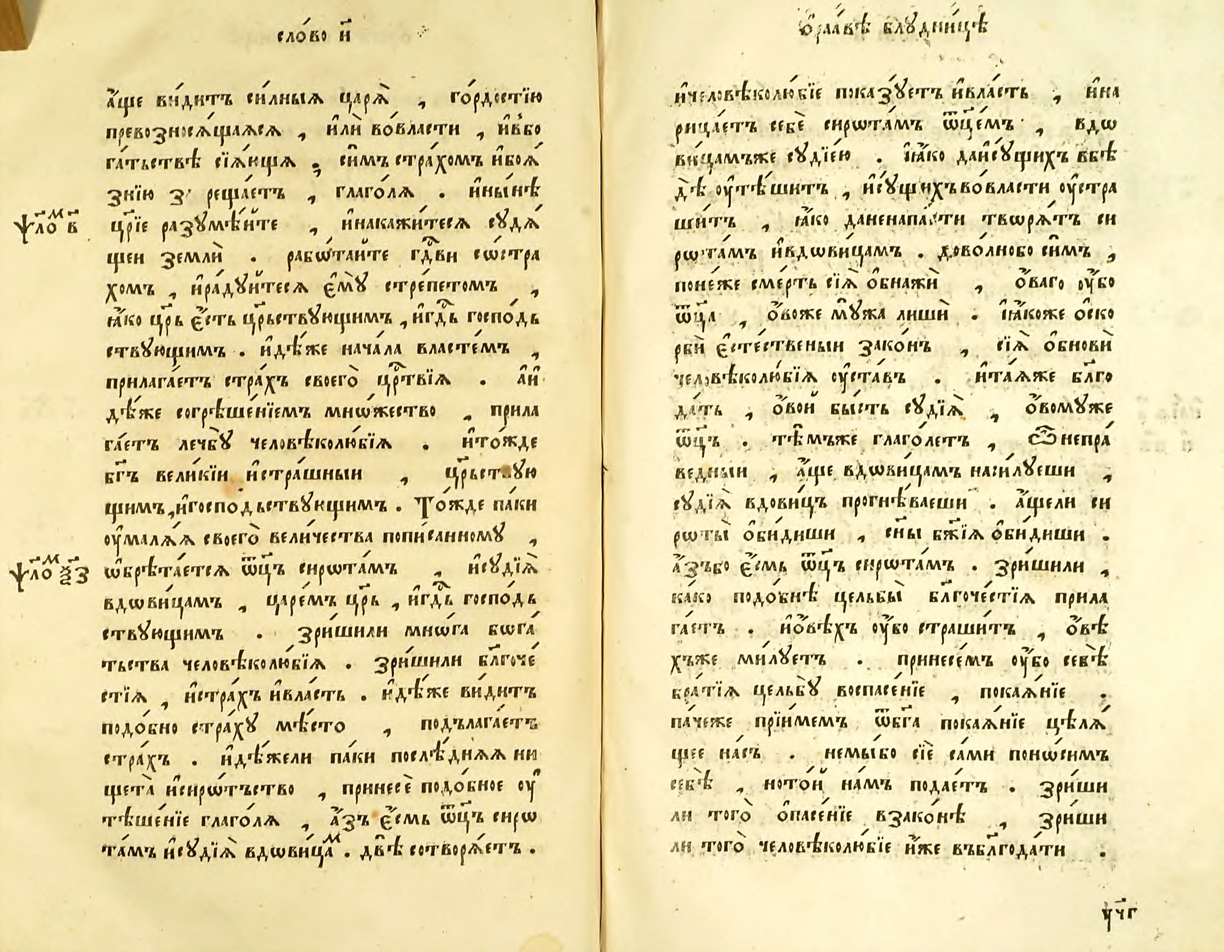 сло́во и҃
а҆́ще ви́дитъ си́лныѧ царѧ̀ , го́рдостїю
превозносѧ́щаѧсѧ , и҆лѝ во́власти , и҆в̾бо
га́тьствѣ сїѧ́ющѧ , си́мъ стра́хомъ и҆боѧ́
знїю рѣша́етъ , глаго́лѧ . и҆ны́нѣ
ѱало́м в҃
цр҃їе разꙋмѣ́йте , и҆накажи́тесѧ сꙋдѧ́
щеи землѝ . рабѡ́тайте гдⷭ҇ви сѡ́стра
хомъ , и҆ра́дꙋйтесѧ є҆мꙋ̀ стре́петомъ ,
ꙗ҆́кѡ цр҃ь є҆́сть црⷭ҇ьствꙋющимъ , и҆гдⷭ҇ь госпо́дь
ствꙋющимъ . и҆дѣ́же нача́ла власте́мъ ,
прилага́етъ стра́хъ своегѡ̀ црⷭ҇твїѧ . а҆и҆
дѣ́же согрѣше́нїемъ мнѡ́жество , прила
га́етъ лечбꙋ̀ человѣколю́бїѧ . и҆то́жде
бг҃ъ вели́кїи и҆стра́шныи , црⷭ҇ьствꙋю
щимъ , и҆госпо́дьствꙋющимъ . То́жде па́ки
ᲂу҆малѧ́ѧ своего̀ вели́чества попи́санномꙋ ,
ѱало́м ѯ҃з
ѡ҆брѣта́етсѧ ѿц҃ъ сирѡта́мъ , и҆сꙋдїѧ̀
вдѡви́цамъ , царе́мъ цр҃ь , и҆гдⷭ҇ь госпо́дь
ствꙋющимъ . зри́шили мнѡ́га бѡга́
тьства человѣколю́бїѧ . зри́шили бл҃гоче́
стїѧ , и҆стра́хъ и҆вла́сть . и҆дѣ́же ви́дитъ
подо́бно стра́хꙋ мѣ́сто , под̾лага́етъ
стра́хъ . и҆дѣ́жели па́ки послѣ́днѧѧ ни
щета̀ и҆сирѡ́тьство , принесѐ подо́бное ᲂу҆
тѣше́нїе глаго́лѧ , а҆́зъ є҆́смь ѿц҃ъ сирѡ
та́мъ и҆сꙋдїѧ̀ вдѡви́цам . двѣ̀ сотворѧ́етъ .
ѡ҆раа́вѣ блꙋдни́цѣ
и҆человѣколю́бїе показꙋ́етъ и҆вла́сть , и҆на
рица́етъ себѐ сирѡта́мъ ѿц҃емъ , вдѡ
ви́цамъже сꙋдїе́ю . ꙗ҆́ко даи҆сꙋ́щихъ вбѣ
дѣ̀ ᲂу҆тѣ́шитъ , и҆сꙋ́щихъ во́власти ᲂу҆стра
ши́тъ , ꙗ҆́ко даненапа́сти творѧ́тъ си
рѡта́мъ и҆вдѡви́цам . дово́лнобо си́мъ ,
поне́же сме́рть сїѧ̀ ѡ҆бнажѝ , ѻ҆́ваго ᲂу҆́бо
ѿц҃а , ѻ҆́вѡже мꙋ́жа лишѝ . ꙗ҆́коже ѡ҆ско
рбѝ є҆сте́ственыи зако́нъ , сїѧ̀ ѡ҆бновѝ
человѣколю́бїѧ ᲂу҆ста́въ . и҆та́ѧже бл҃го
да́ть , ѻ҆́вой бы́сть сꙋдїѧ̀ , ѻ҆́вомꙋже
ѿц҃ъ . тѣ́мъже глаго́летъ , ѽнепра́
ведныи , а҆́ще вдѡви́цамъ наси́лꙋеши ,
сꙋдїѧ̀ вдови́цъ прогнѣ́ваеши . а҆́щели си
рѡты̀ ѡ҆би́диши , сн҃ы бж҃їѧ ѡ҆би́диши .
а҆́зъбо є҆́смь ѿц҃ъ сирѡта́мъ . зри́шили ,
ка́ко подо́бнѣ цельбы̀ бл҃гоче́стїѧ прила
га́етъ . и҆ѻ҆́вѣхъ ᲂу҆́бо страши́тъ , ѻ҆́вѣ
хъже ми́лꙋетъ . принесе́мъ ᲂу҆́бо себѣ̀
бра́тїѧ цельбꙋ̀ воспасе́нїе , покаѧ́нїе .
па́чеже прїи́мемъ ѿбг҃а покаѧ́нїе цѣлѧ́
щее на́съ . немы́бо сїѐ са́ми понѡ́симъ
себѣ̀ , ното́й на́мъ подае́тъ . зри́ши
ли того̀ ѡ҆пасе́нїе взако́нѣ , зри́ши
ли того̀ человѣколю́бїе и҆́же въбл҃года́ти .
ѵ҃чг